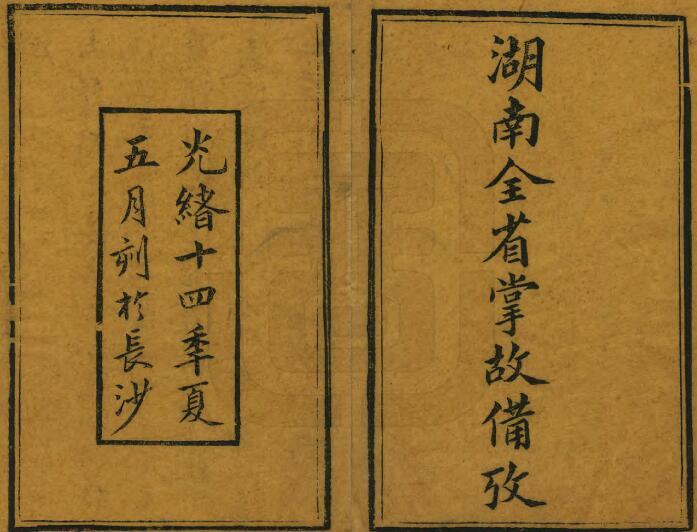 湖南全省掌故備攷
光緒十四年夏
五月刻於長沙